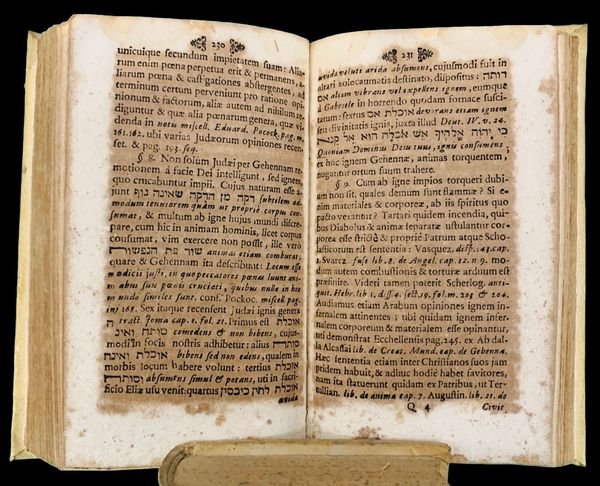 230
unicuique secundum impietatem suam: Alia-
rum enim pœna perpetua erit & permanens, a-
liarum pœna & castigationes abstergentes, ad
terminum certum perveniunt pro ratione opi-
nionum & factorum, aliæ autem ad nihilum re-
diguntur & quæ alia pœnarum genera, quæ vi-
denda in notu miscell. Eduard. Pocock. pag. m.
161. 162. ubi varias Judæorum opiniones recen-
set. & pag. 193. seq.
§ 8. Non solùm Judæi per Gehennam re-
motionem à facie Dei intelligunt, sed ignem,
quo crucabuntur impii. Cujus naturam esse a-
junt דקה מן הדקה שאונה גוף subtilem ad-
modum tenuiorem quàm ut propriè corpus con-
sumat, & multùm ab igne hujus mundi discre-
pare, cum hic in animam hominis, licet corpus
consumat, vim exercere non possit, ille verò
שורפת הנפשות animas etiam comburat;
quare & Gehennam ita describunt: Locum esse
medicii justi, in quo peccatores pœnas luunt ani-
mabus suis pœnâ cruciati, quibus nulla in hoc
mundo similes sunt. conf. Pocock. miscell. pag.
inj 168. Sex itaque recensent Judæi ignis genera
tract. Joma cap. 1. fol. 21. Primus est אוכלת
ואינה סותה comedens & non bibens, cujus-
modi in focis nostris adhibetur: alius סותה
ואינה אוכלת bibens sed non edens, qualem in
morbis locum habere volunt: tertius אוכלת
וסותה absumens simul & potans, uti in sacri-
ficio Eliæ usu venit: quartus אוכלת לחין כיבסין
uvida
231
uvida veluti arida absumens, cujusmodi fuit in
altari holocaumatis destinato, dispositus: דוחה
אש אש aliam vibrans vel expellens ignem, eumque
à Gabriele in horrendo quodam fornace susci-
tatum: sextus אוכלת אש devorans etiam ignem
seu divinitatis ignis, juxta illud Deut. IV. v. 24.
כי יהוה אלהיך אש אכלה הוא אל קנא
Quoniam Dominus Deus tuus, ignis consumens;
ex hoc ignem Gehennæ, animas torquentem,
nugantur ortum suum trahere.
§ 9. Cùm ab igne impios torqueri dubi-
um non sit, quales demum sunt flammæ? Si e-
nim materiales & corporeæ, ab iis spiritus quo
pacto vexantur? Tartari quidem incendia, qui-
bus Diabolus & animæ separatæ ustulantur cor-
porea esse strictè & propriè Patrum atque Scho-
lasticorum est sententia: Vasquez. disp. 243. cap.
1. Svarcz. fuse lib. 8. de Angel. cap. 12. n 9. mo-
dum autem combustionis & torturæ arduum est
præfinire. Videri tamen poterit Scherlog. anti-
quit. Hebr. lib 1, diss. 4. sect. 19. fol. m. 203 & 204.
Audiamus etiam Arabum opiniones ignem in-
fernalem attinentes; ubi quidam ignem infer-
nalem corporeum & materialem esse opinantur,
uti demonstrat Ecchellensis pag. 245. ex Ab dal-
la Alcassai lib. de Creat. Mund. cap. de Gehenna.
Hæc sententia etiam inter Christianos suos jam
pridem habuit, & adhuc hodiè habet favitores,
nam ita statuerunt quidam ex Patribus, ut Ter-
tullian. lib. de anima cap. 7. Augustin. lib. 21. de
Q 4 Civit.